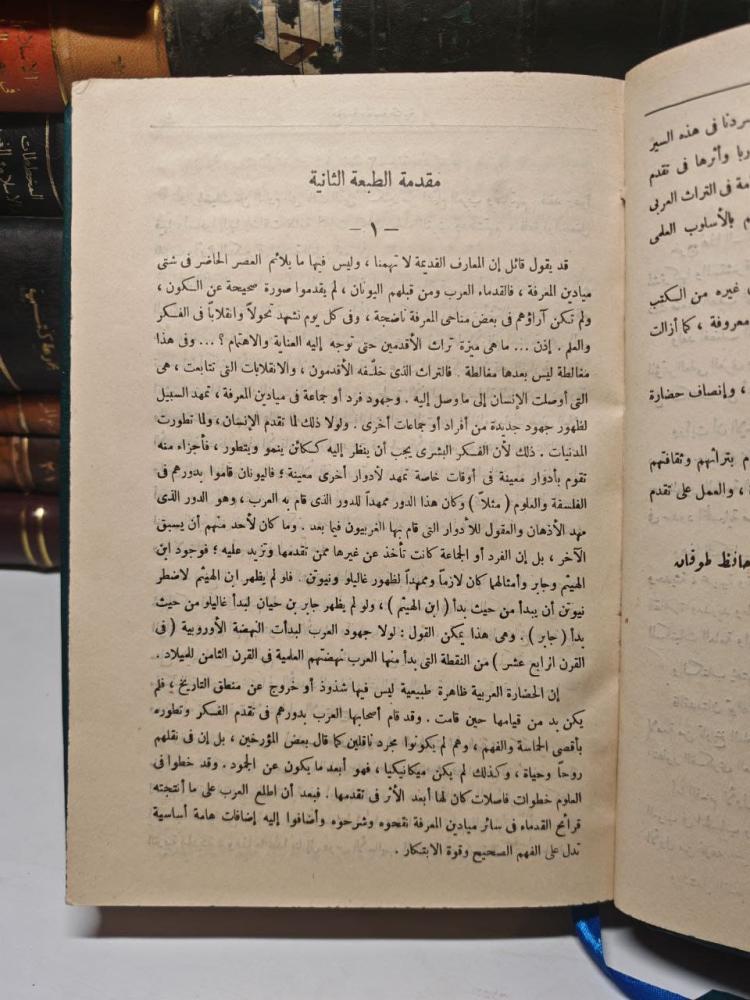 مقدمة الطبعة الثانية
– ١ –
قد يقول قائل إن المعارف القديمة لا تهمنا ، وليس فيها ما يلائم العصر الحاضر فى شتى
ميادين المعرفة ، فالقدماء العرب ومن قبلهم اليونان ، لم يقدموا صورة صحيحة عن الكون ،
ولم تكن آراؤهم فى بعض مناحى المعرفة ناضجة ، وفى كل يوم نشهد تحولاً وانقلاباً فى الفكر
والعلم . إذن ... ما هى ميزة تراث الأقدمين حتى توجه إليه العناية والاهتمام ؟ ... وفى هذا
مغالطة ليس بعدها مغالطة . فالتراث الذى خلّفه الأقدمون ، والانقلابات التى تتابعت ، هى
التى أوصلت الإنسان إلى ما وصل إليه . وجهود فرد أو جماعة فى ميادين المعرفة ، تمهد السبيل
لظهور جهود جديدة من أفراد أو جماعات أخرى . ولولا ذلك لما تقدم الإنسان ، ولما تطورت
المدنيات . ذلك لأن الفكر البشرى يجب أن ينظر إليه ككائن ينمو ويتطور ، فأجزاء منه
تقوم بأدوار معينة فى أوقات خاصة تمهد لأدوار أخرى معينة ؛ فاليونان قاموا بدورهم فى
الفلسفة والعلوم ( مثلاً ) وكان هذا الدور ممهداً للدور الذى قام به العرب ، وهو الدور الذى
مهد الأذهان والعقول للأدوار التى قام بها الغربيون فيما بعد . وما كان لأحد منهم أن يسبق
الآخر ، بل إن الفرد أو الجماعة كانت تأخذ عن غيرها ممن تقدمها وتزيد عليه ؛ فوجود ابن
الهيثم وجابر وأمثالهما كان لازماً وممهداً لظهور غاليلو ونيوتن . فلو لم يظهر ابن الهيثم لاضطر
نيوتن أن يبدأ من حيث بدأ ( ابن الهيثم ) ، ولو لم يظهر جابر بن حيان لبدأ غاليلو من حيث
بدأ ( جابر ) . وهى هذا يمكن القول : لولا جهود العرب لبدأت النهضة الأوروبية ( فى
القرن الرابع عشر ) من النقطة التى بدأ منها العرب نهضتهم العلمية فى القرن الثامن للميلاد .
إن الحضارة العربية ظاهرة طبيعية ليس فيها شذوذ أو خروج عن منطق التاريخ ، فلم
يكن بد من قيامها حين قامت . وقد قام أصحابها العرب بدورهم فى تقدم الفكر وتطوره
بأقصى الحماسة والفهم ، وهم لم يكونوا مجرد ناقلين كما قال بعض المؤرخين ، بل إن فى نقلهم
روحاً وحياة ، وكذلك لم يكن ميكانيكيا ، فهو أبعد ما يكون عن الجمود . وقد خطوا فى
العلوم خطوات فاصلات كان لها أبعد الأثر فى تقدمها . فبعد أن اطلع العرب على ما أنتجته
قرائح القدماء فى سائر ميادين المعرفة نقحوه وشرحوه وأضافوا إليه إضافات هامة أساسية
تدل على الفهم الصحيح وقوة الابتكار .
سردنا فى هذه السير
وأثرها فى تقدم
فى التراث العربى
بالأسلوب العلمى
غيره من الكتب
معروفة ، كما أزالت
، وإنصاف حضارة
بتراثهم وثقافتهم
، والعمل على تقدم
حافظ طوقان